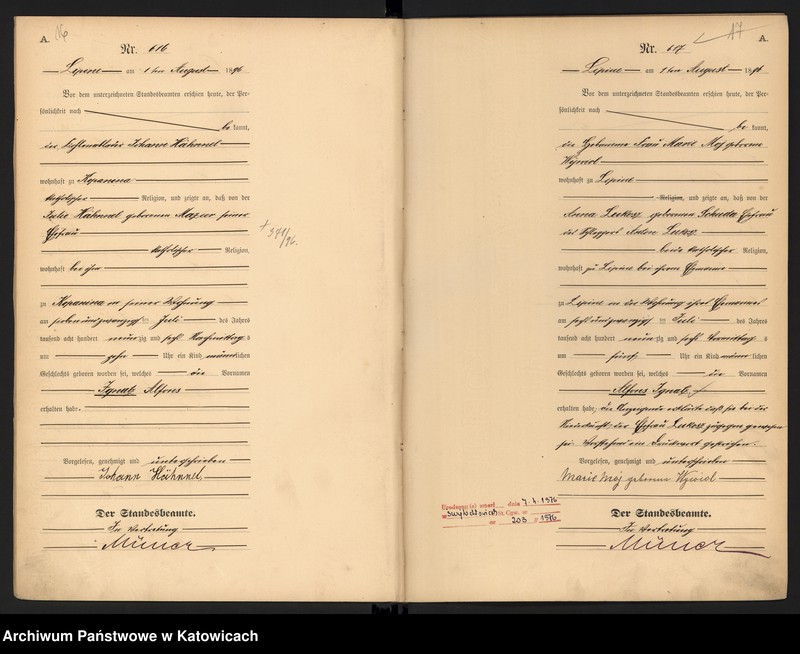 A.
16
Nr. 616
Lipine am 1ten August 1896
Vor dem unterzeichneten Standesbeamten erschien heute, der Per-
sönlichkeit nach
be kannt,
der Johann Hähnnel
wohnhaft zu Kopanina
katholischer Religion, und zeigte an, daß von der
Julie Hähnnel geborenen Mazur seiner
Ehefrau
katholischer Religion,
wohnhaft bei ihm
zu Kopanina in seiner Wohnung
am sieben und zwanzigsten Juli des Jahres
tausend acht hundert neunzig und sechs Nachmittags
um zehn Uhr ein Kind männlichen
Geschlechts geboren worden sei, welches die Vornamen
Ignatz Alfons
erhalten habe.
Vorgelesen, genehmigt und unterschrieben
Johann Hähnnel
Der Standesbeamte.
In Vertretung
† 341/96.
17
A.
Nr. 617
Lipine am 1ten August 1896
Vor dem unterzeichneten Standesbeamten erschien heute, der Per-
sönlichkeit nach
be kannt,
die Hebamme Frau Marie Moj geborene
wohnhaft zu Lipine
Religion, und zeigte an, daß von der
Anna Lukosz geborenen Ehefrau
des Lukosz
beide katholischer Religion,
wohnhaft zu Lipine bei ihrem Ehemanne
zu Lipine in der Wohnung ihres Ehemannes
am sechs und zwanzigsten Juli des Jahres
tausend acht hundert neunzig und sechs Vormittags
um fünf Uhr ein Kind männlichen
Geschlechts geboren worden sei, welches die Vornamen
Alfons Ignatz
erhalten habe, die Anzeigende erklärte daß sie bei der
Niederkunft der Ehefrau Lukosz zugegen gewesen
sei. Vorstehend ein Druckwort gestrichen.
Vorgelesen, genehmigt und unterschrieben
Marie Moj geborene
Der Standesbeamte.
In Vertretung
zmarł dnia 7.1.1976
w Świętochłowicach
nr 203 / 1976
Archiwum Państwowe w Katowicach